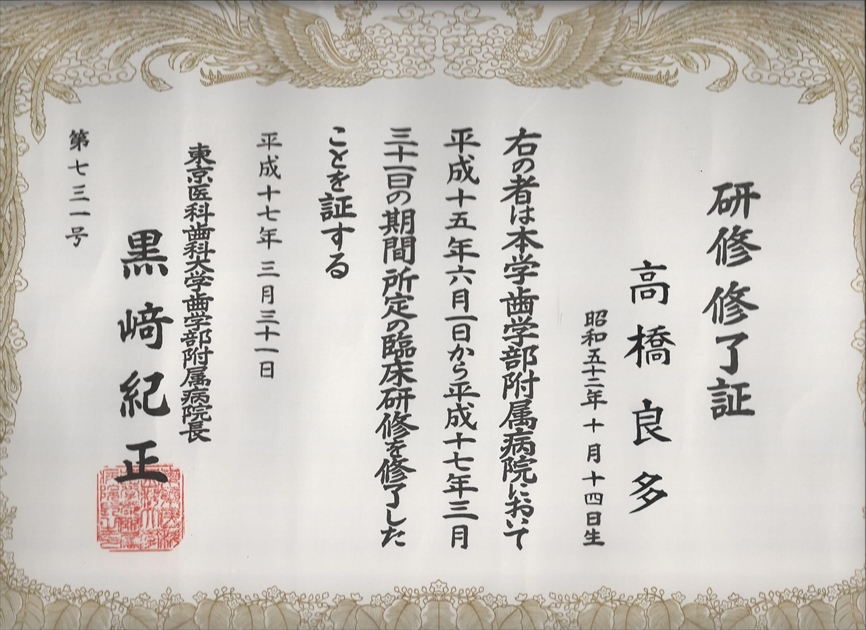 研修修了証
高橋良多
昭和五十二年十月十四日生
右の者は本学歯学部附属病院において
平成十五年六月一日から平成十七年三月
三十一日の期間所定の臨床研修を修了した
ことを証する
平成十七年三月三十一日
東京医科歯科大学歯学部附属病院長
黒﨑紀正
第七三一号